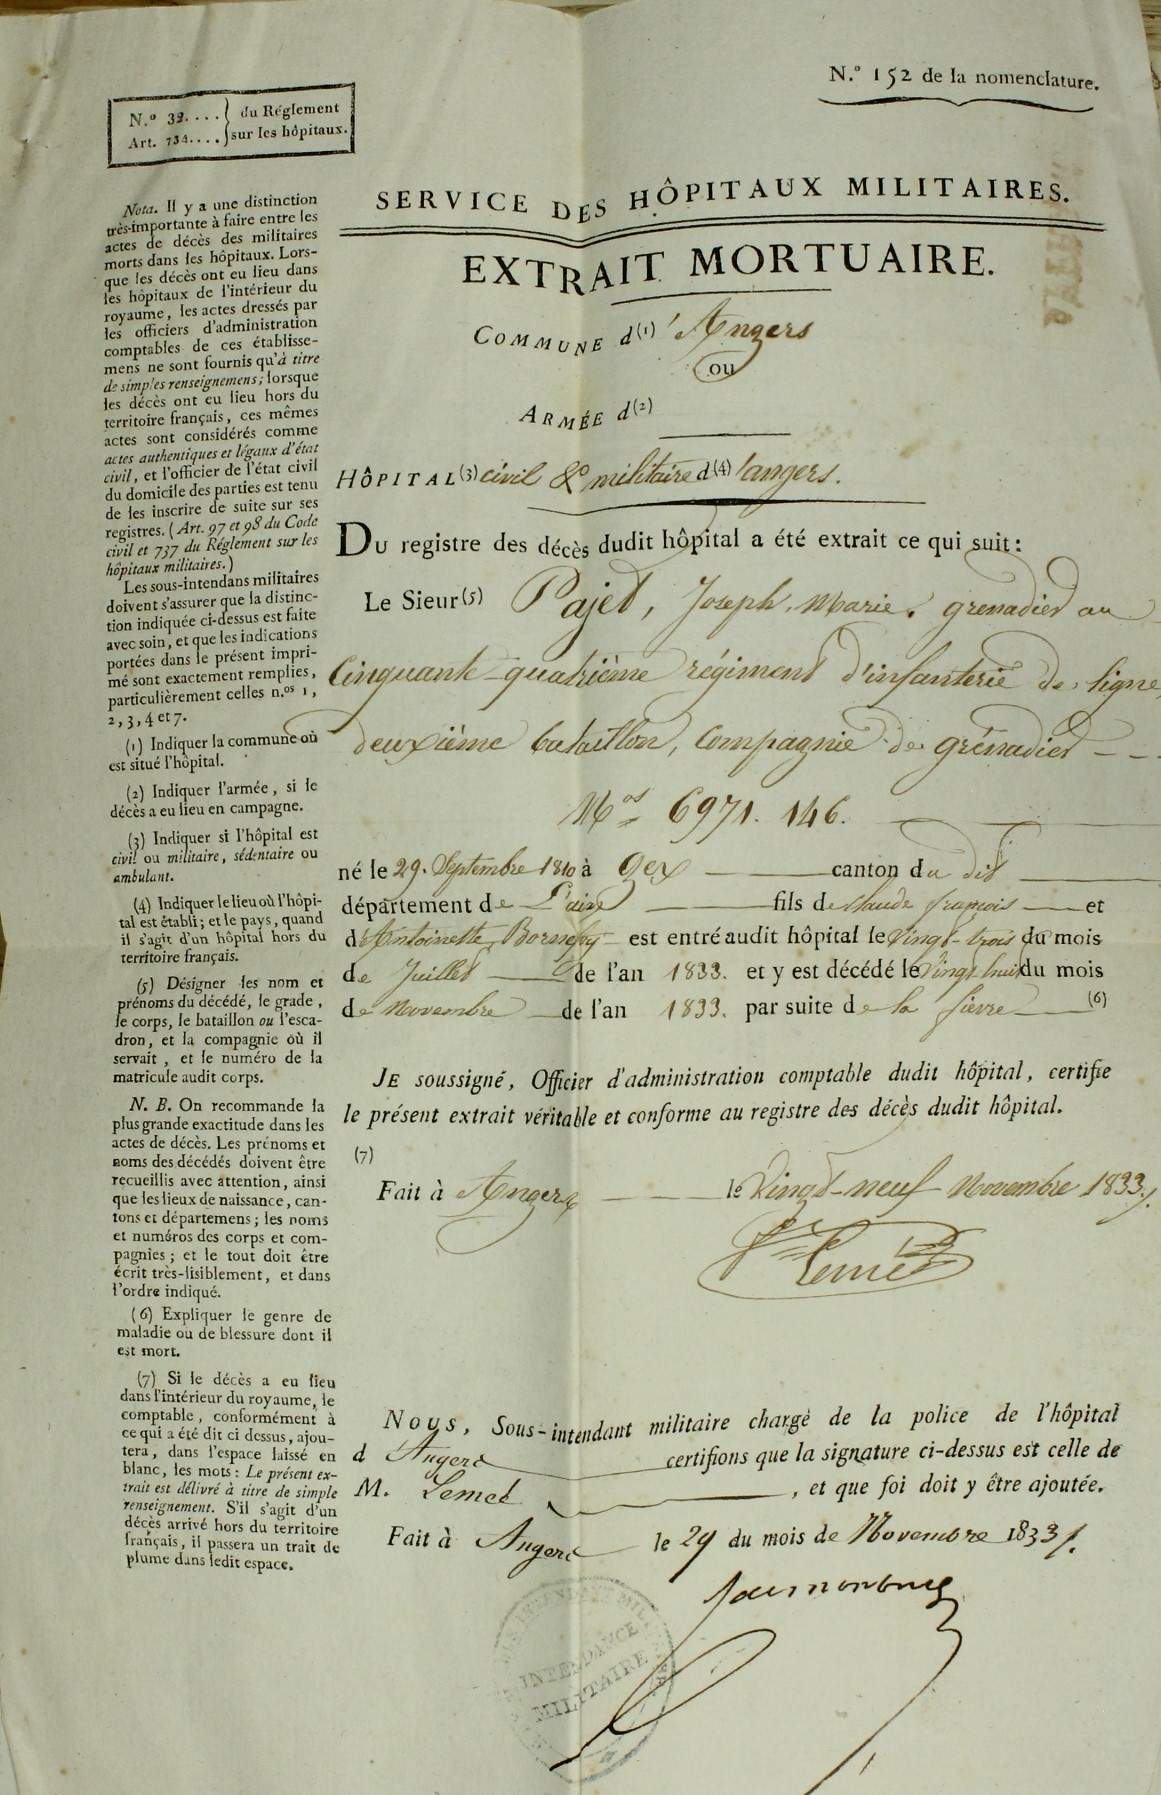 N.º 152 de la nomenclature.
N.º 32.... du Réglement
Art. 734.... sur les hôpitaux.
SERVICE DES HÔPITAUX MILITAIRES.
EXTRAIT MORTUAIRE.
COMMUNE d(1) 'Angers
ou
ARMÉE d(2)
HÔPITAL (3) civil & militaire d(4) 'angers.
DU registre des décès dudit hôpital a été extrait ce qui suit :
Le Sieur (5) Pajet, Joseph, Marie. grenadier au
Cinquante-quatrième régiment d'infanterie de ligne,
deuxième bataillon, Compagnie de grénadier - - -
Nos 6971. 146.
né le 29. Septembre 1810 à gex canton du dit
département de L'ain fils de Claude françois et
d'Antoinette est entré audit hôpital le Vingt-trois du mois
de Juillet de l'an 1833. et y est décédé le Vingt huit du mois
de Novembre de l'an 1833. par suite de la fievre (6)
JE soussigné, Officier d'administration comptable dudit hôpital, certifie
le présent extrait véritable et conforme au registre des décès dudit hôpital.
(7)
Fait à Angers le Vingt-neuf Novembre 1833.
Lemée
NOUS, Sous-intendant militaire chargé de la police de l'hôpital
d'Angers certifions que la signature ci-dessus est celle de
M. Lemée, et que foi doit y être ajoutée.
Fait à Angers le 29 du mois de Novembre 1833.
INTENDANCE
MILITAIRE
Nota. Il y a une distinction
très-importante à faire entre les
actes de décès des militaires
morts dans les hôpitaux. Lors-
que les décès ont eu lieu dans
les hôpitaux de l'intérieur du
royaume, les actes dressés par
les officiers d'administration
comptables de ces établisse-
mens ne sont fournis qu'à titre
de simples renseignemens; lorsque
les décès ont eu lieu hors du
territoire français, ces mêmes
actes sont considérés comme
actes authentiques et légaux d'état
civil, et l'officier de l'état civil
du domicile des parties est tenu
de les inscrire de suite sur ses
registres. (Art. 97 et 98 du Code
civil et 737 du Réglement sur les
hôpitaux militaires.)
Les sous-intendans militaires
doivent s'assurer que la distinc-
tion indiquée ci-dessus est faite
avec soin, et que les indications
portées dans le présent impri-
mé sont exactement remplies,
particulièrement celles n.os 1,
2, 3, 4 et 7.
(1) Indiquer la commune où
est situé l'hôpital.
(2) Indiquer l'armée, si le
décès a eu lieu en campagne.
(3) Indiquer si l'hôpital est
civil ou militaire, sédentaire ou
ambulant.
(4) Indiquer le lieu où l'hôpi-
tal est établi; et le pays, quand
il s'agit d'un hôpital hors du
territoire français.
(5) Désigner les nom et
prénoms du décédé, le grade,
le corps, le bataillon ou l'esca-
dron, et la compagnie où il
servait, et le numéro de la
matricule audit corps.
N. B. On recommande la
plus grande exactitude dans les
actes de décès. Les prénoms et
noms des décédés doivent être
recueillis avec attention, ainsi
que les lieux de naissance, can-
tons et départemens; les noms
et numéros des corps et com-
pagnies; et le tout doit être
écrit très-lisiblement, et dans
l'ordre indiqué.
(6) Expliquer le genre de
maladie ou de blessure dont il
est mort.
(7) Si le décès a eu lieu
dans l'intérieur du royaume, le
comptable, conformément à
ce qui a été dit ci dessus, ajou-
tera, dans l'espace laissé en
blanc, les mots: Le présent ex-
trait est délivré à titre de simple
renseignement. S'il s'agit d'un
décès arrivé hors du territoire
français, il passera un trait de
plume dans ledit espace.